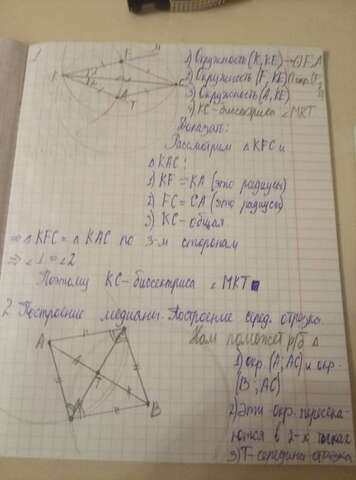 1.
1) Окружность (K, KE) → F, A
2) Окружность (F, KE)
3) Окружность (A, KE)
4) KC - биссектриса ∠MKT
Доказать:
Рассмотрим △KFC и
△KAC:
1) KF = KA (это радиусы)
2) FC = CA (это радиусы)
3) KC - общая.
⇒ △KFC = △KAC по 3-м сторонам
⇒ ∠1 = ∠2
Поэтому KC - биссектриса ∠MKT
2. Построение медианы. Построение серед. отрезка.
Нам поможет р/б △
A
B
1) окр. (A; AC) и окр.
(B; AC)
2) Эти окр. пересека-
ются в 2-х точках
3) T - середина отрезка